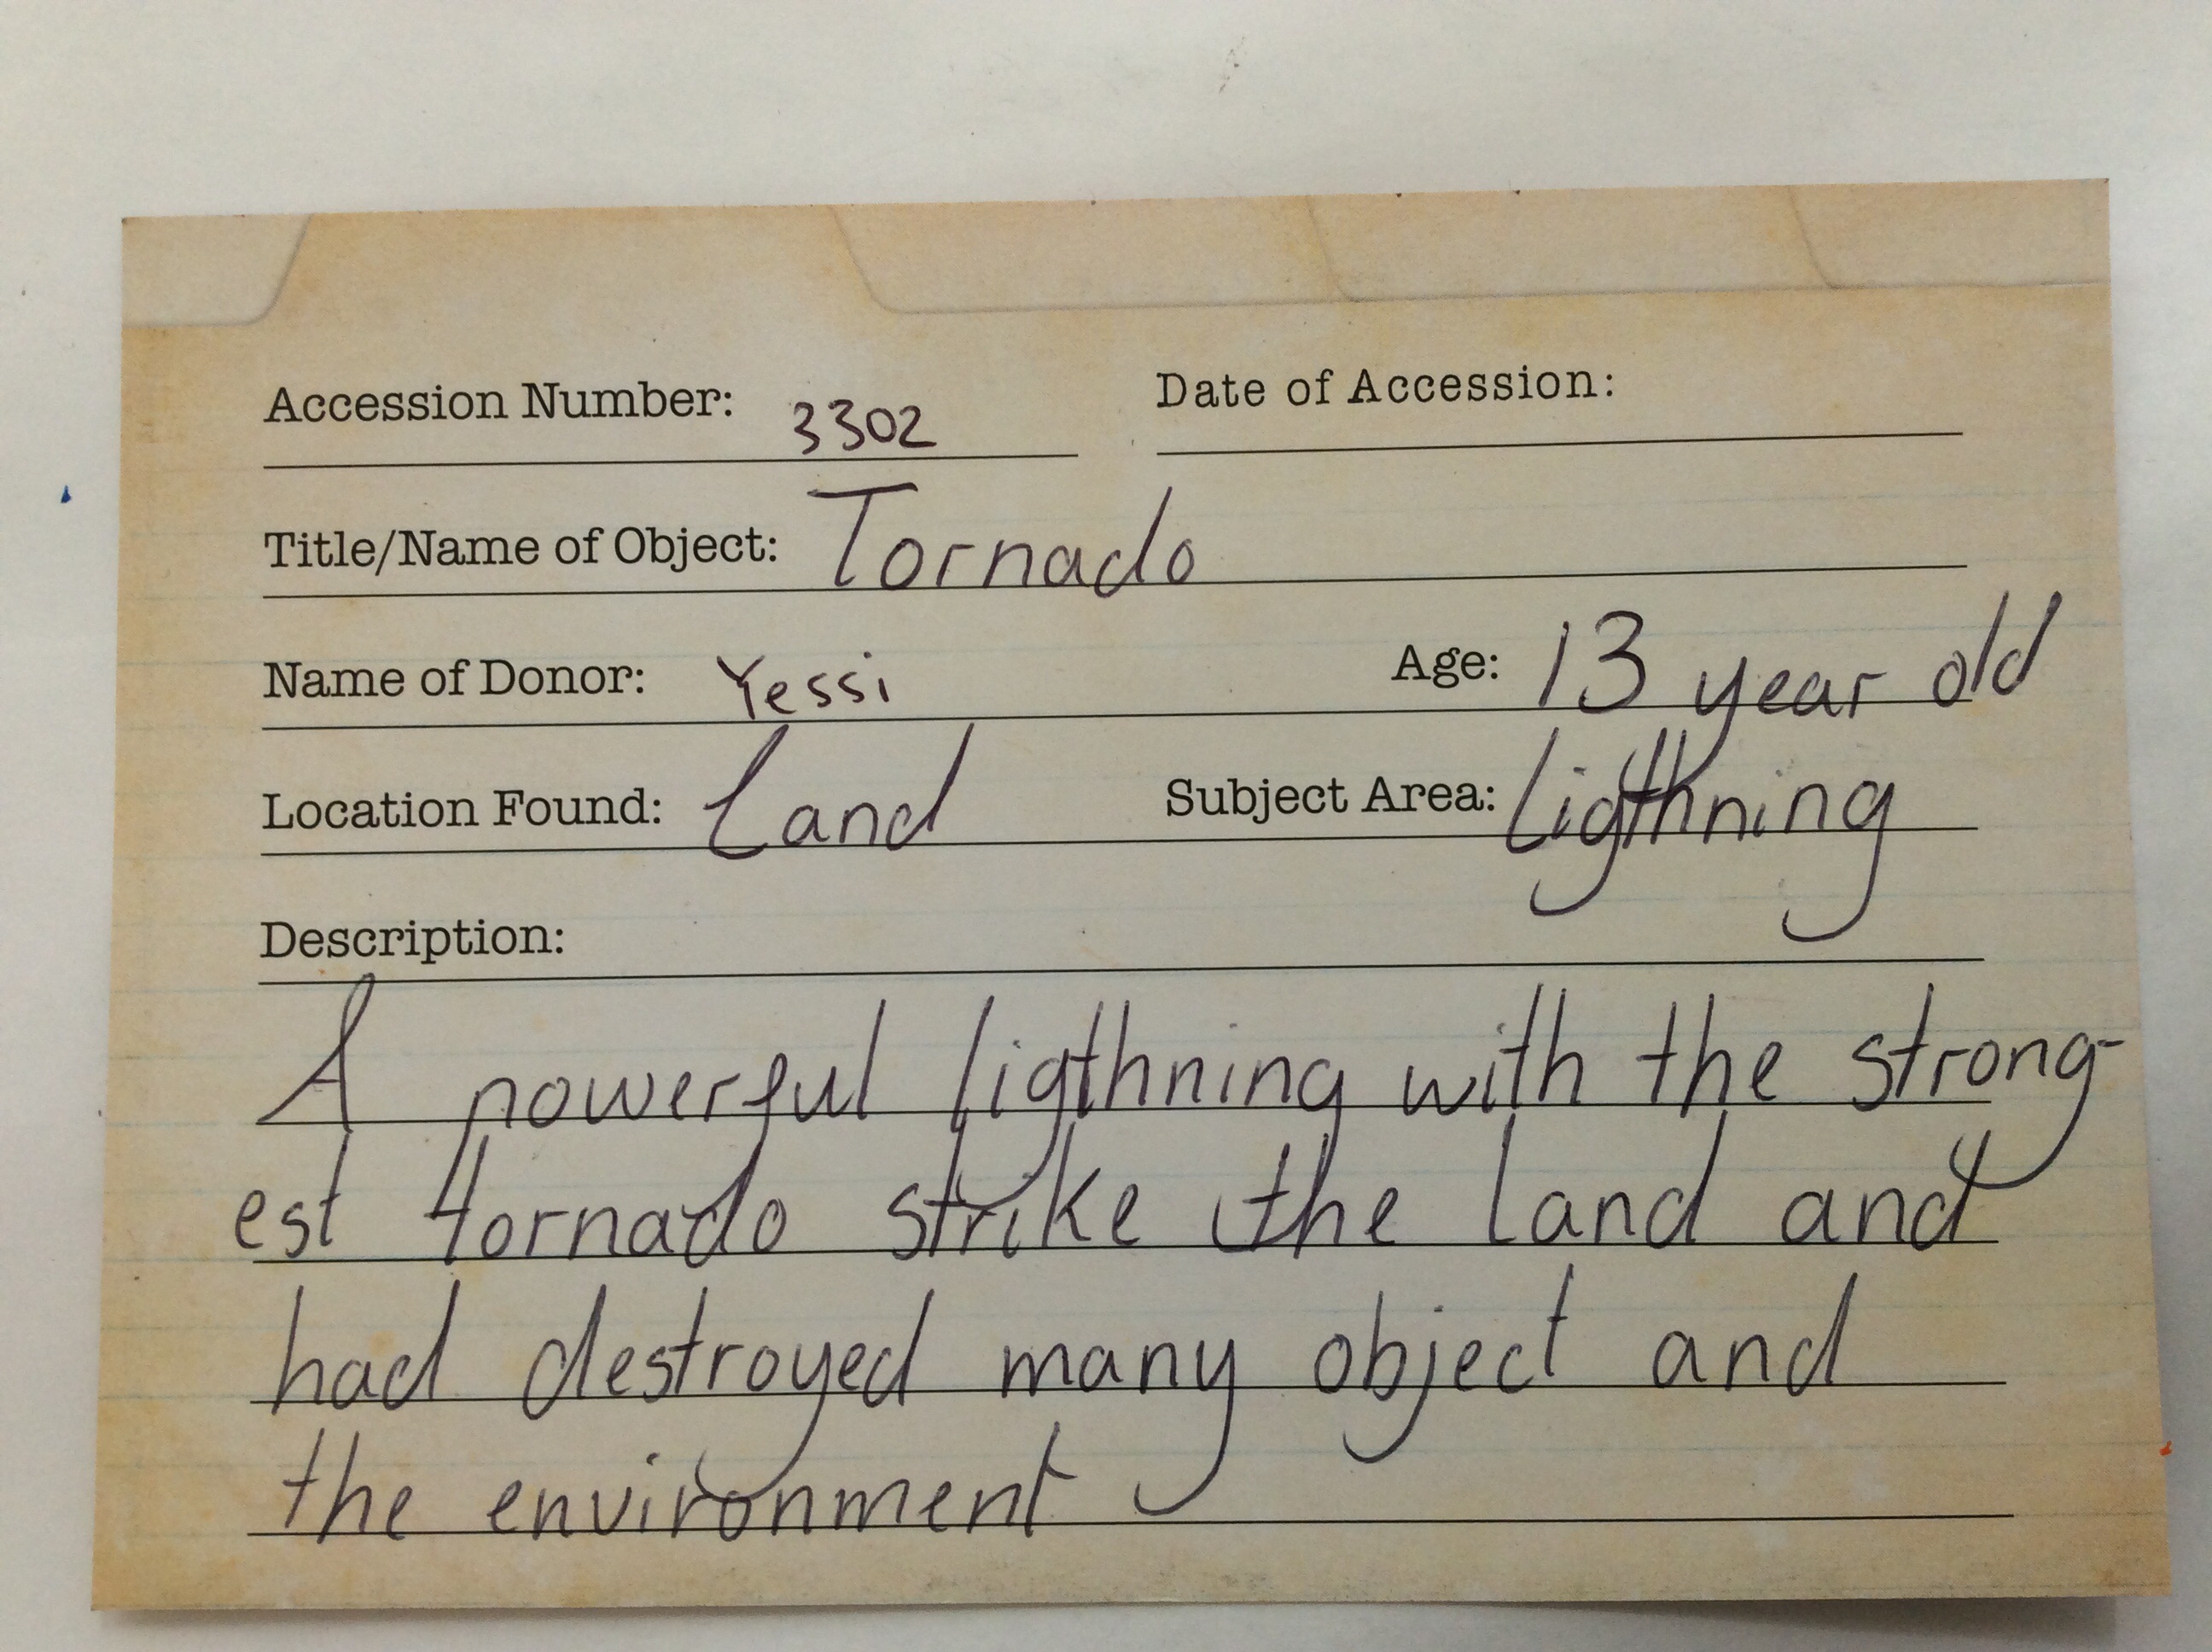 Accession Number: 3302 Date of Accession:
Title/Name of Object: Tornado
Name of Donor: Yessi Age: 13 year old
Location Found: Land Subject Area: Ligthning
Description:
A powerful ligthning with the strong-
est tornado strike the land and
had destroyed many object and
the environment